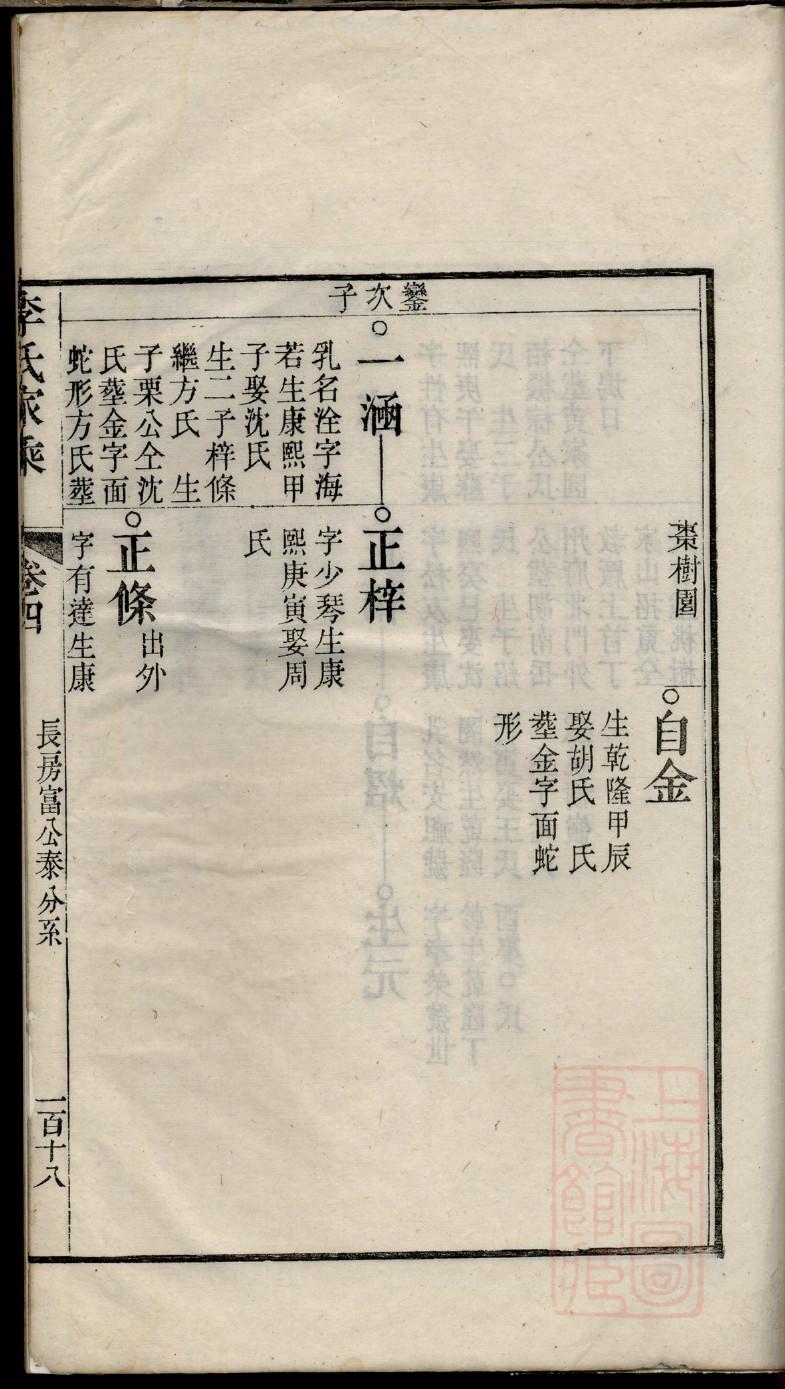 棗樹園
自金
生乾隆甲辰
娶胡氏 氏
塟金字面蛇
形
鑾次子
一涵
乳名泩字海
若生康熙甲
子娶沈氏
生二子梓條
繼方氏 生
子栗公仝沈
氏塟金字面
蛇形方氏塟
正梓
字少琴生康
熙庚寅娶周
氏
正條出外
字有達生康
李氏家乘
卷四
長房富公泰分系
一百十八
上海圖
書館藏